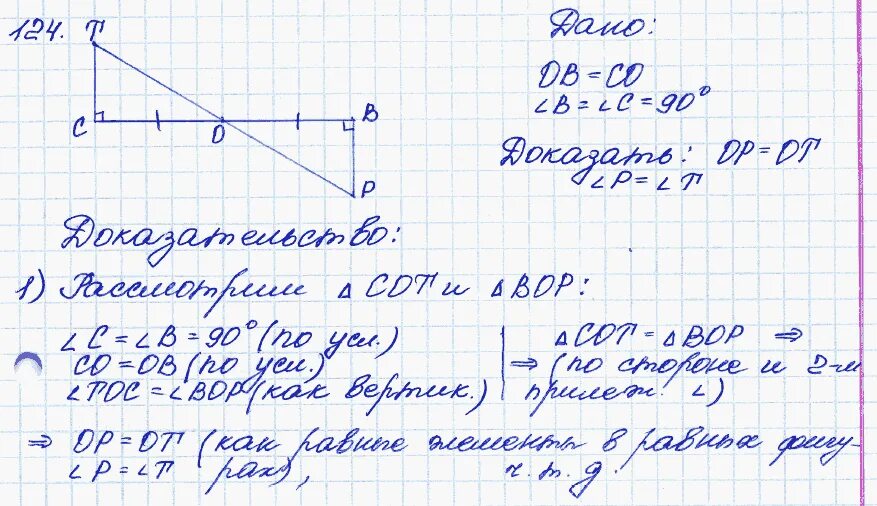 124. T
C O B
P
Дано:
OB = CO
∠B = ∠C = 90°
Доказать: OP = OT
∠P = ∠T
Доказательство:
1) Рассмотрим △COT и △BOP:
∠C = ∠B = 90° (по усл.)
CO = OB (по усл.)
∠TOC = ∠BOP (как вертик.)
△COT = △BOP ⇒
⇒ (по стороне и 2-м
прилеж. ∠)
⇒ OP = OT (как равные элементы в равных фигу-
∠P = ∠T рах), ч.т.д.